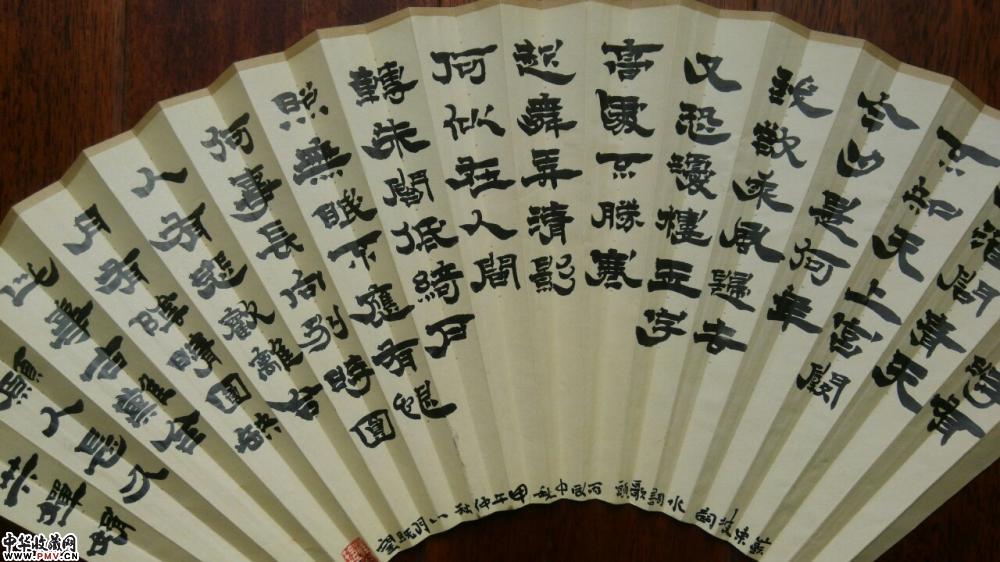 酒問青天
不知天上宮闕
今夕是何年
我欲乘風歸去
又恐瓊樓玉宇
高處不勝寒
起舞弄清影
何似在人間
轉朱閣低綺戶
照無眠不應有恨
何事長向別時圓
人有悲歡離合
月有陰晴圓缺
此事古難全
願人長久
共嬋娟
蘇東坡詞 水調歌頭 丙辰中秋 甲午仲秋 八月既望
中华收藏网
www.PMV.CN